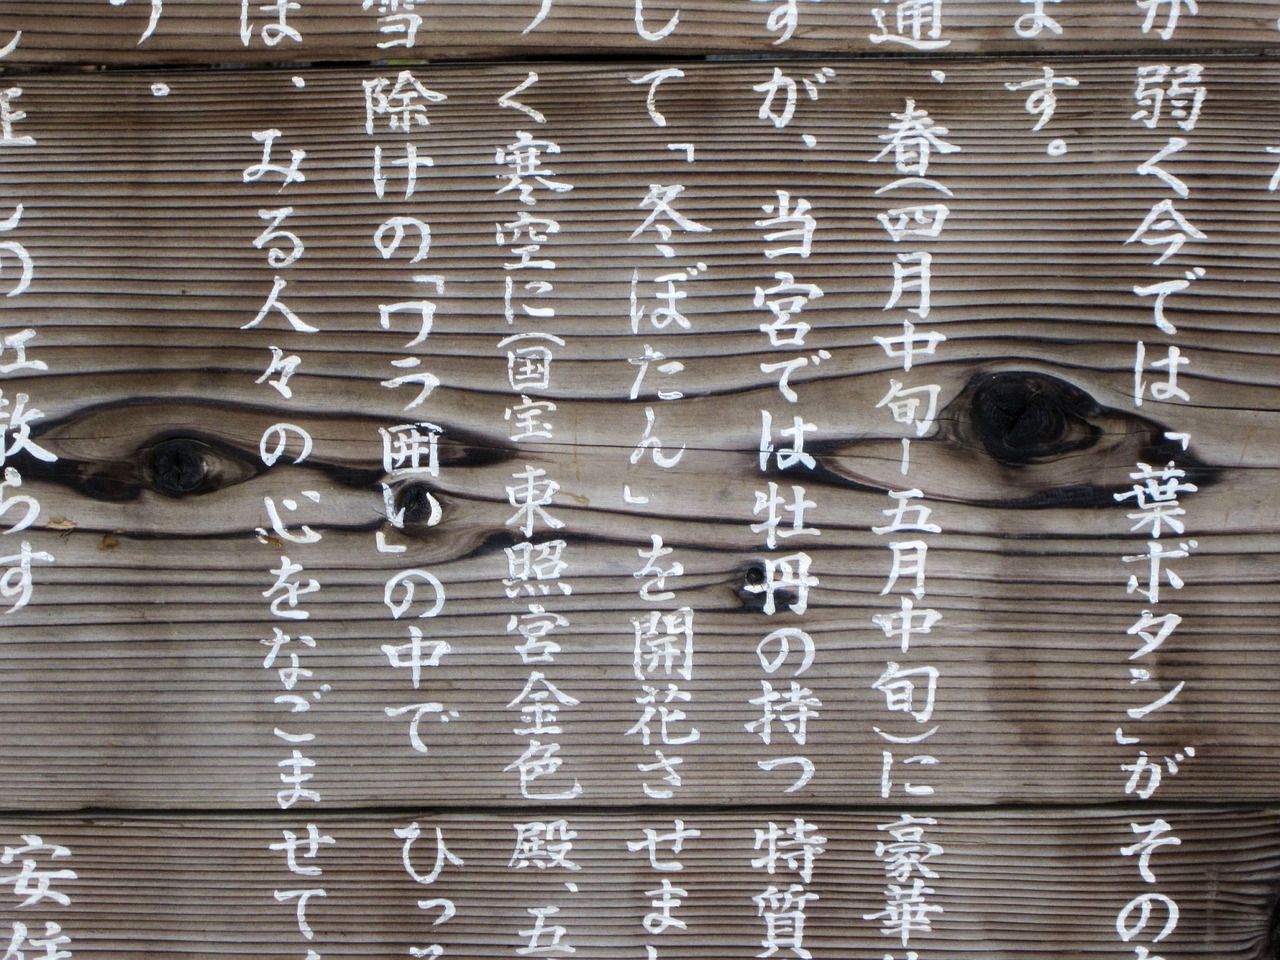 が弱く今では「葉ボタン」がその
ます。
通、春(四月中旬ー五月中旬)に豪華
すが、当宮では牡丹の持つ特質
して「冬ぼたん」を開花させま
く寒空に(国宝東照宮金色殿、五
雪除けの「ワラ囲い」の中でひっ
は、みる人々の心をなごませて
う。